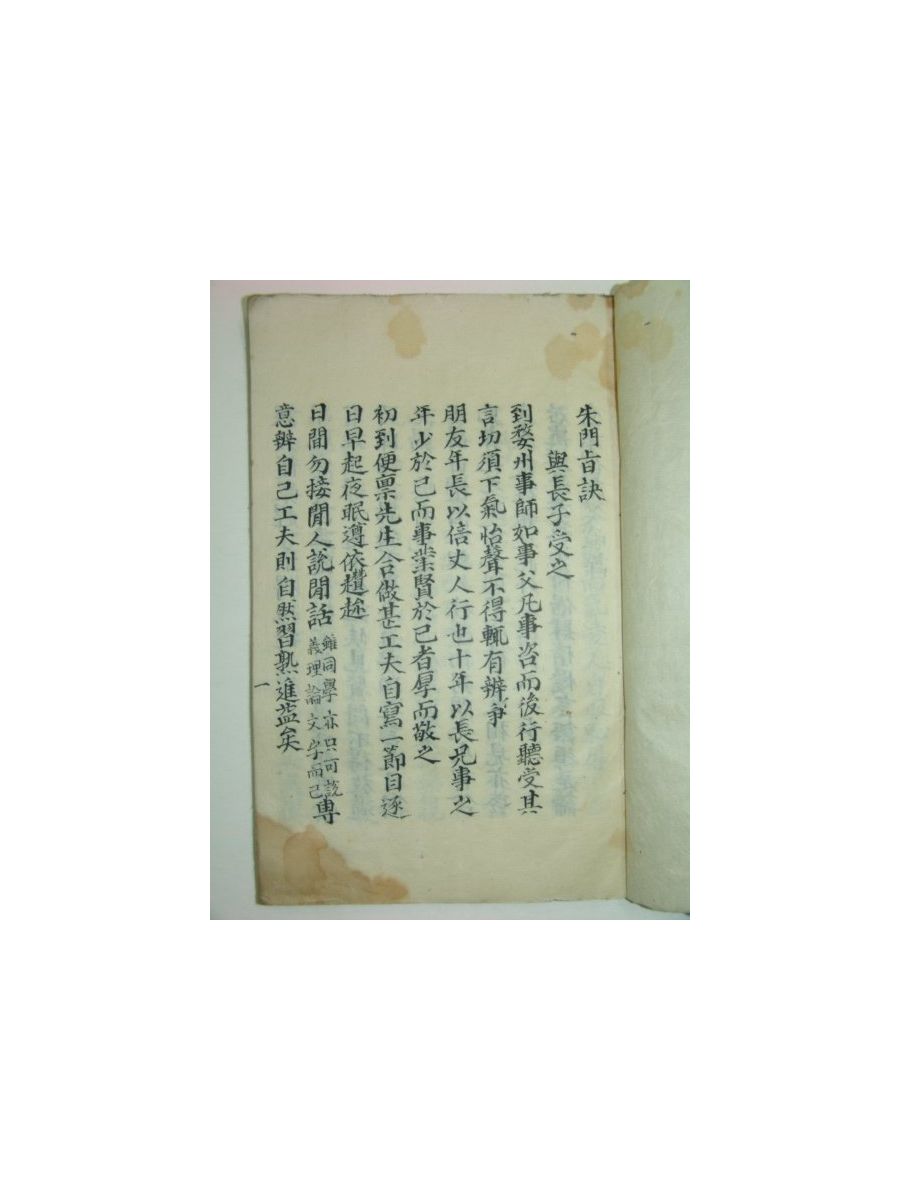 朱門旨訣
與長子受之
到婺州事師如事父凡事咨而後行聽受其
言切須下氣怡聲不得輒有辨爭
朋友年長以倍丈人行也十年以長兄事之
年少於己而事業賢於己者厚而敬之
初到便稟先生合做甚工夫自寫一節目逐
日早起夜眠遵依趲趂
日間勿接閒人說閒話雖同學亦只可說義理論文字而已專
意辦自己工夫則自然習熟進益矣
一